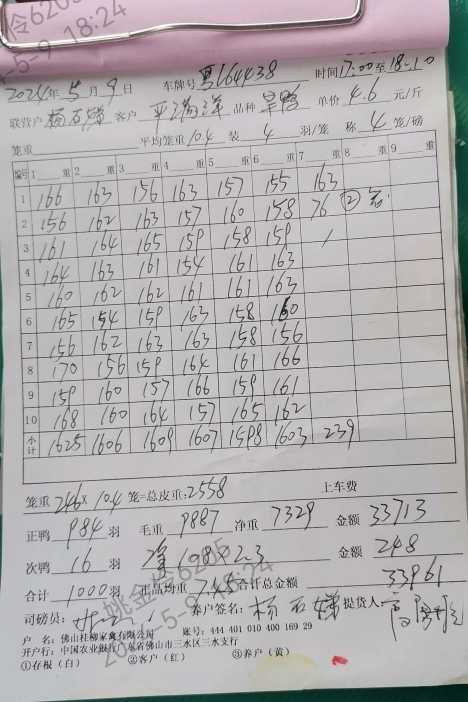 令620
5-9 18:24
2024年5月9日 车牌号 粤164438 时间17:00至18:10
联营户 杨石娣 客户 品种 旱鸭 单价 4.6 元/斤
笼重 平均笼重 10.4 装 4 羽/笼 称 4 笼/磅
编号 1 重 2 重 3 重 4 重 5 重 6 重 7 重 8 重 9 重
1 166 163 156 163 157 155 163
2 156 162 163 157 160 158 76 ②
3 161 164 165 159 158 159 /
4 164 163 161 154 161 163
5 160 162 162 161 161 163
6 165 154 159 163 158 160
7 156 162 163 163 158 156
8 170 156 159 164 161 166
9 159 160 157 166 159 161
10 168 160 164 157 165 162
小计 1625 1606 1609 1607 1598 1603 239
笼重 246×10.4 笼=总皮重:2558 上车费
正鸭 984 羽 毛重 9887 净重 7329 金额 33713
次鸭 16 羽 108×2.3 金额 248
合计 1000 羽 正品均重 7.45 合计总金额 33961
司磅员: 客户签名: 杨石娣 提货人:
户 名: 佛山桂柳家禽有限公司 账号: 444 401 010 400 169 29
开户行: 中国农业银行广东省佛山市三水区三水支行
①存根（白） ②客户（红） ③养户（黄）